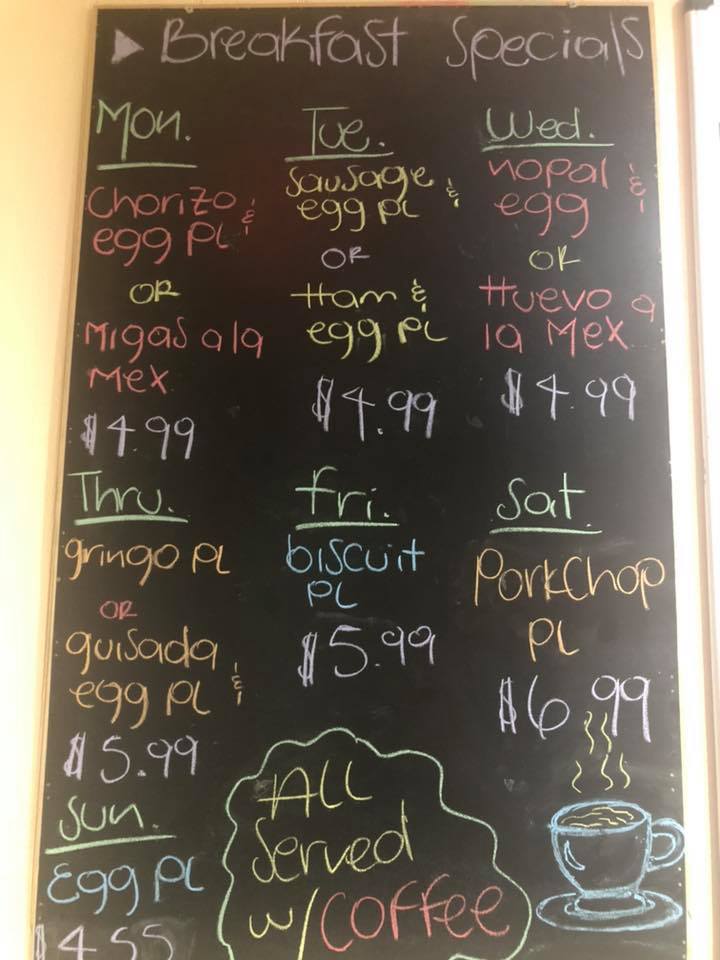 Breakfast Specials
Mon.
Chorizo &
egg PL
OR
Migas a la
Mex
$4.99
Tue.
Sausage &
egg PL
OR
Ham &
egg PL
$4.99
Wed.
nopal &
egg
OR
Huevo a
la Mex
$4.99
Thru.
gringo PL
OR
guisada &
egg PL
$5.99
Fri.
biscuit
PL
$5.99
Sat.
PorkChop
PL
$6.99
Sun.
Egg PL
$4.55
All
Served
w/COFFEE